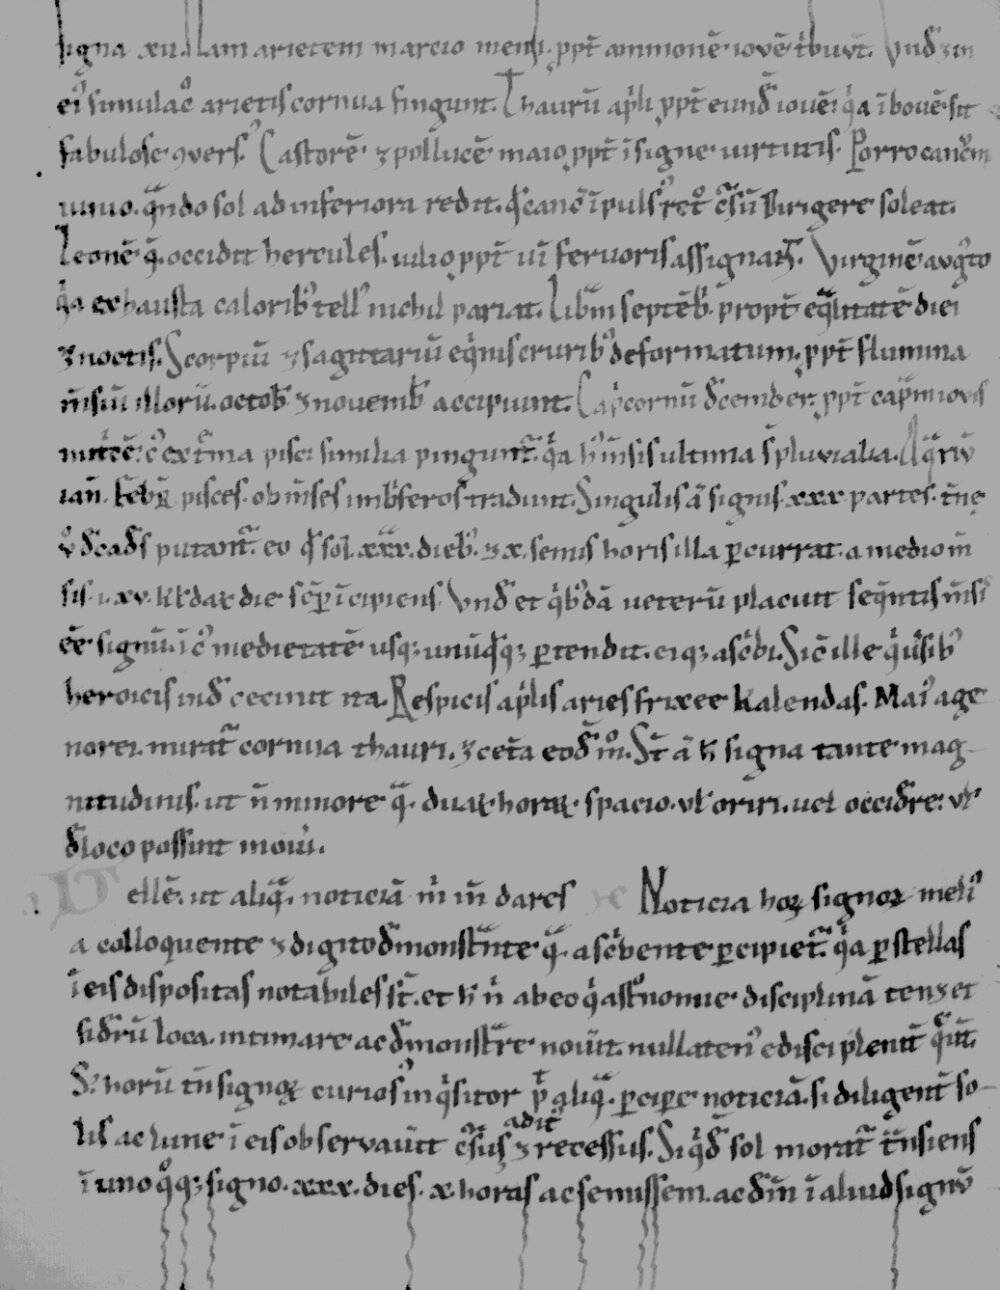 signa xii. Nam arietem marcio mensi. ppt̄ ammonē iovē t̓buūt. Vnđ ⁊ in
ei᷒ simulac̊ arietis cornua fingunt. Thaurū ap̓li ppt̄ eunđ iouē. q̓a ī bovē sit
fabulose ꝯvers᷒. Castorē ⁊ pollucē maio ppt̄ īsigne uirtutis. Porro cancrm̄
iunio. qn̄do sol ad inferiora redit. q̓ canc̄ īpuls᷒ ret̊ c̄sū dirigere soleat.
Leonē q̄. occidit hercules. iulio ppt̄ uī fervoris assignaꝶ. Virginē avg᷒to
q̓a exhausta calorib᷒ tell᷒ nichil pariat. Librā septēb̄. propt̄ eq̄litatē diei
⁊ noctis. Scorpiū ⁊ sagittariū eq̓nis crurib᷒ deformatum. ppt̄ flumina
m̄siū illorū. octob̄ ⁊ novemb̄ accipiunt. Cap̓cornū đcember. ppt̄ cap̄m iovis
nut̓cē. c᷒ ext̄ma pisci similia pingunt᷑. q̓a h᷒ m̄sis ultima s̄ pluvialia. Aq̄riū
ian̄. febr̄ pisces. ob m̄ses imb̓feros tradunt. Singulis ā signis .xxx. partes. t̄ne
v̊ đcađs putant᷑. eo q̓ sol .xxx. dieb᷒. ⁊ x. semis horis illa ꝑcurrat. a medio m̄
sis .i. xv. kłdaꝝ die sēꝑ īcipiens. Vnđ et q̓b᷒dā ueterū placuit seq̄ntis m̄si
eē signū. ī c᷒ medietatē usq⁊ unūq̓q⁊ ꝑtendit. eiq⁊ asc̓bi. Sic̄ ille q̓ ūsib᷒
heroicis inđ cecinit ita. Respicis ap̓lis aries frixee kalendas. Mai᷒ age
norei. mirat᷑ cornua thauri. ⁊ cet̄a eođ m̊. St̄ ā ħ signa tante mag
nitudinis. ut n̄ minore q̄. duaꝝ horaꝝ spacio. vł oriri. uel occiđre. vł
đ loco possint mouī.
ellē. ut aliq̄. noticiā m̓ in̄ dares Noticia hoꝝ signoꝝ meli᷒
a colloquente ⁊ digito đmonst̄nte q̄. a sc̓bente ꝑcipiet᷑. q̓a ꝑ stellas
ī eis dispositas notabiles st̄. et ħ n̓ ab eo q̓ ast̊nomie disciplinā tens et
siđrū loca. intimare ac đmonst̄re novit. nullaten᷒ edisci plenit᷒ q̓ūt.
S᷒ horū tn̄ signoꝝ curios᷒ inq̓sitor ꝑ aliq̄. ꝑcipe noticiā. si diligent̄ so-
lis ac lune ī eis observauīt c̄sus adit᷒
⁊ recessus. Siq̓đ sol morat᷑ t̄nsiens
ī uno q̊q⁊ signo. xxx. dies. x. horas ac semissem. ac đin̄ ī aliud signū